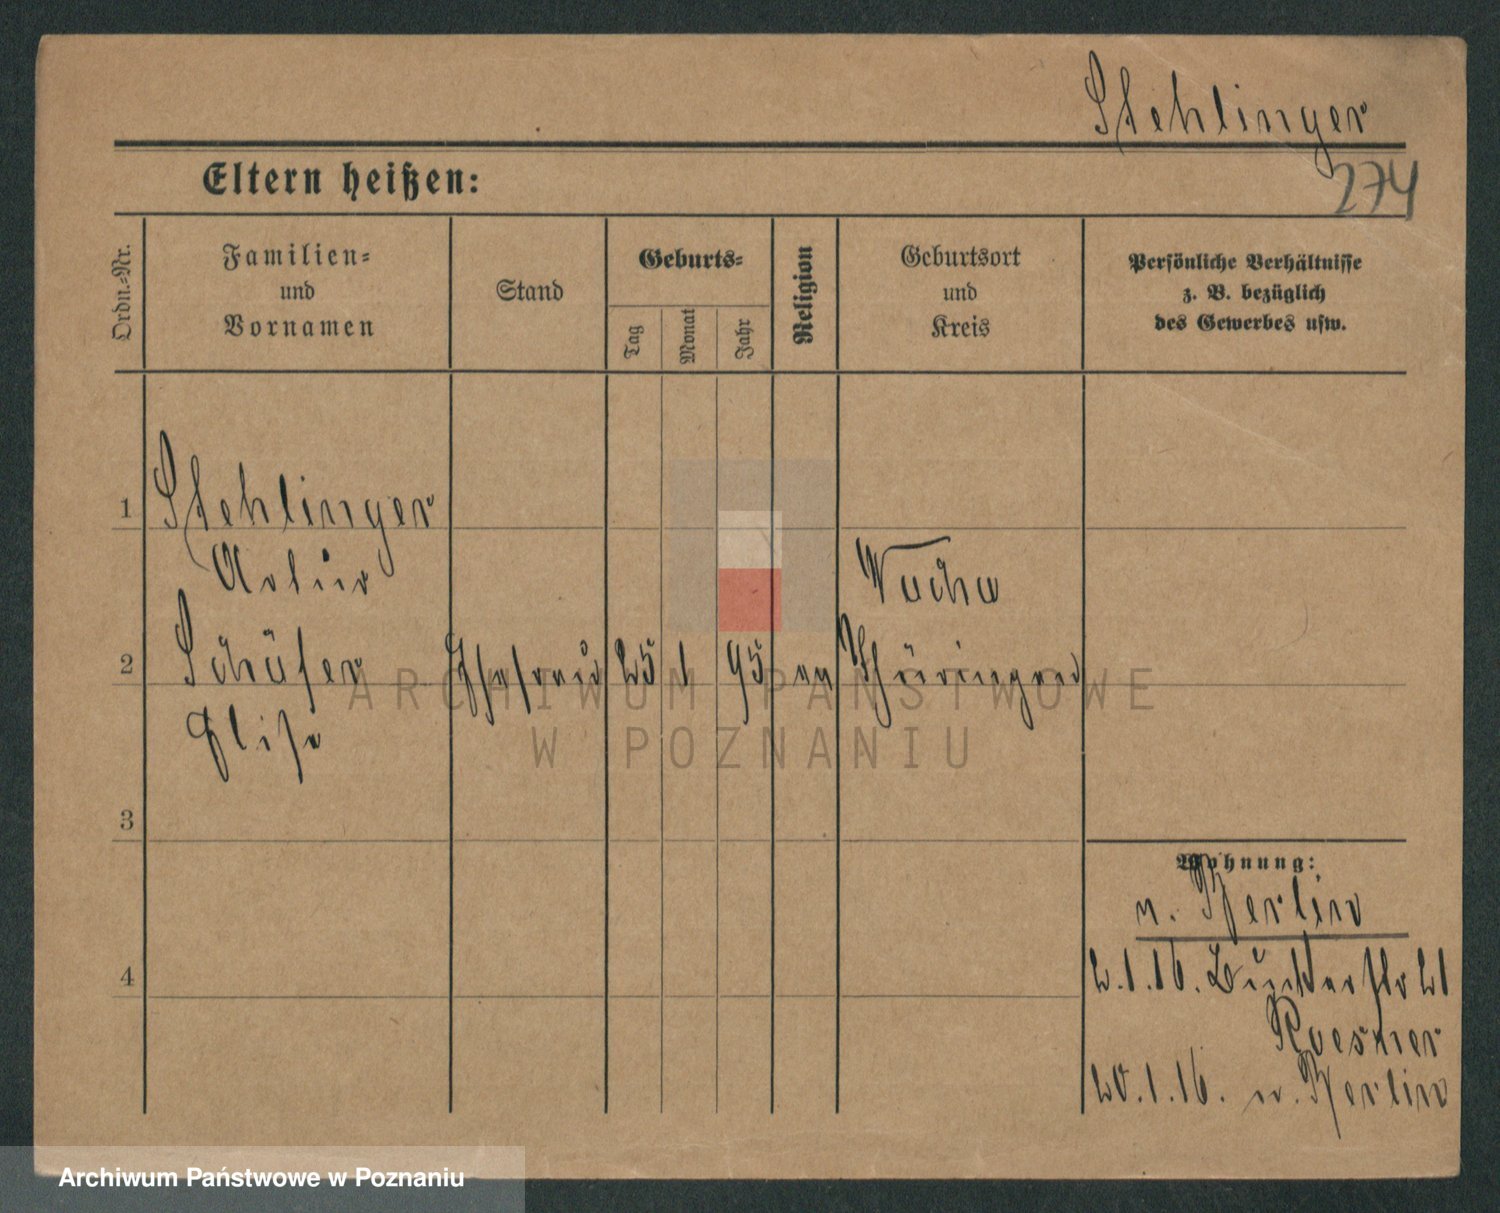 Stehlinger
274
Eltern heißen:
Ordn.-Nr.
Familien-
und
Vornamen
Stand
Geburts-
Tag
Monat
Jahr
Religion
Geburtsort
und
Kreis
Persönliche Verhältnisse
z. B. bezüglich
des Gewerbes usw.
1
Stehlinger
Artur
2
Schäfer
Elise
Ehefrau
25
1
95
ev
Vacha
Thüringen
3
4
Wohnung:
n. Berlin
2.1.16.
21
Roesner
20.1.16. n. Berlin
ARCHIWUM PAŃSTWOWE
W POZNANIU
Archiwum Państwowe w Poznaniu